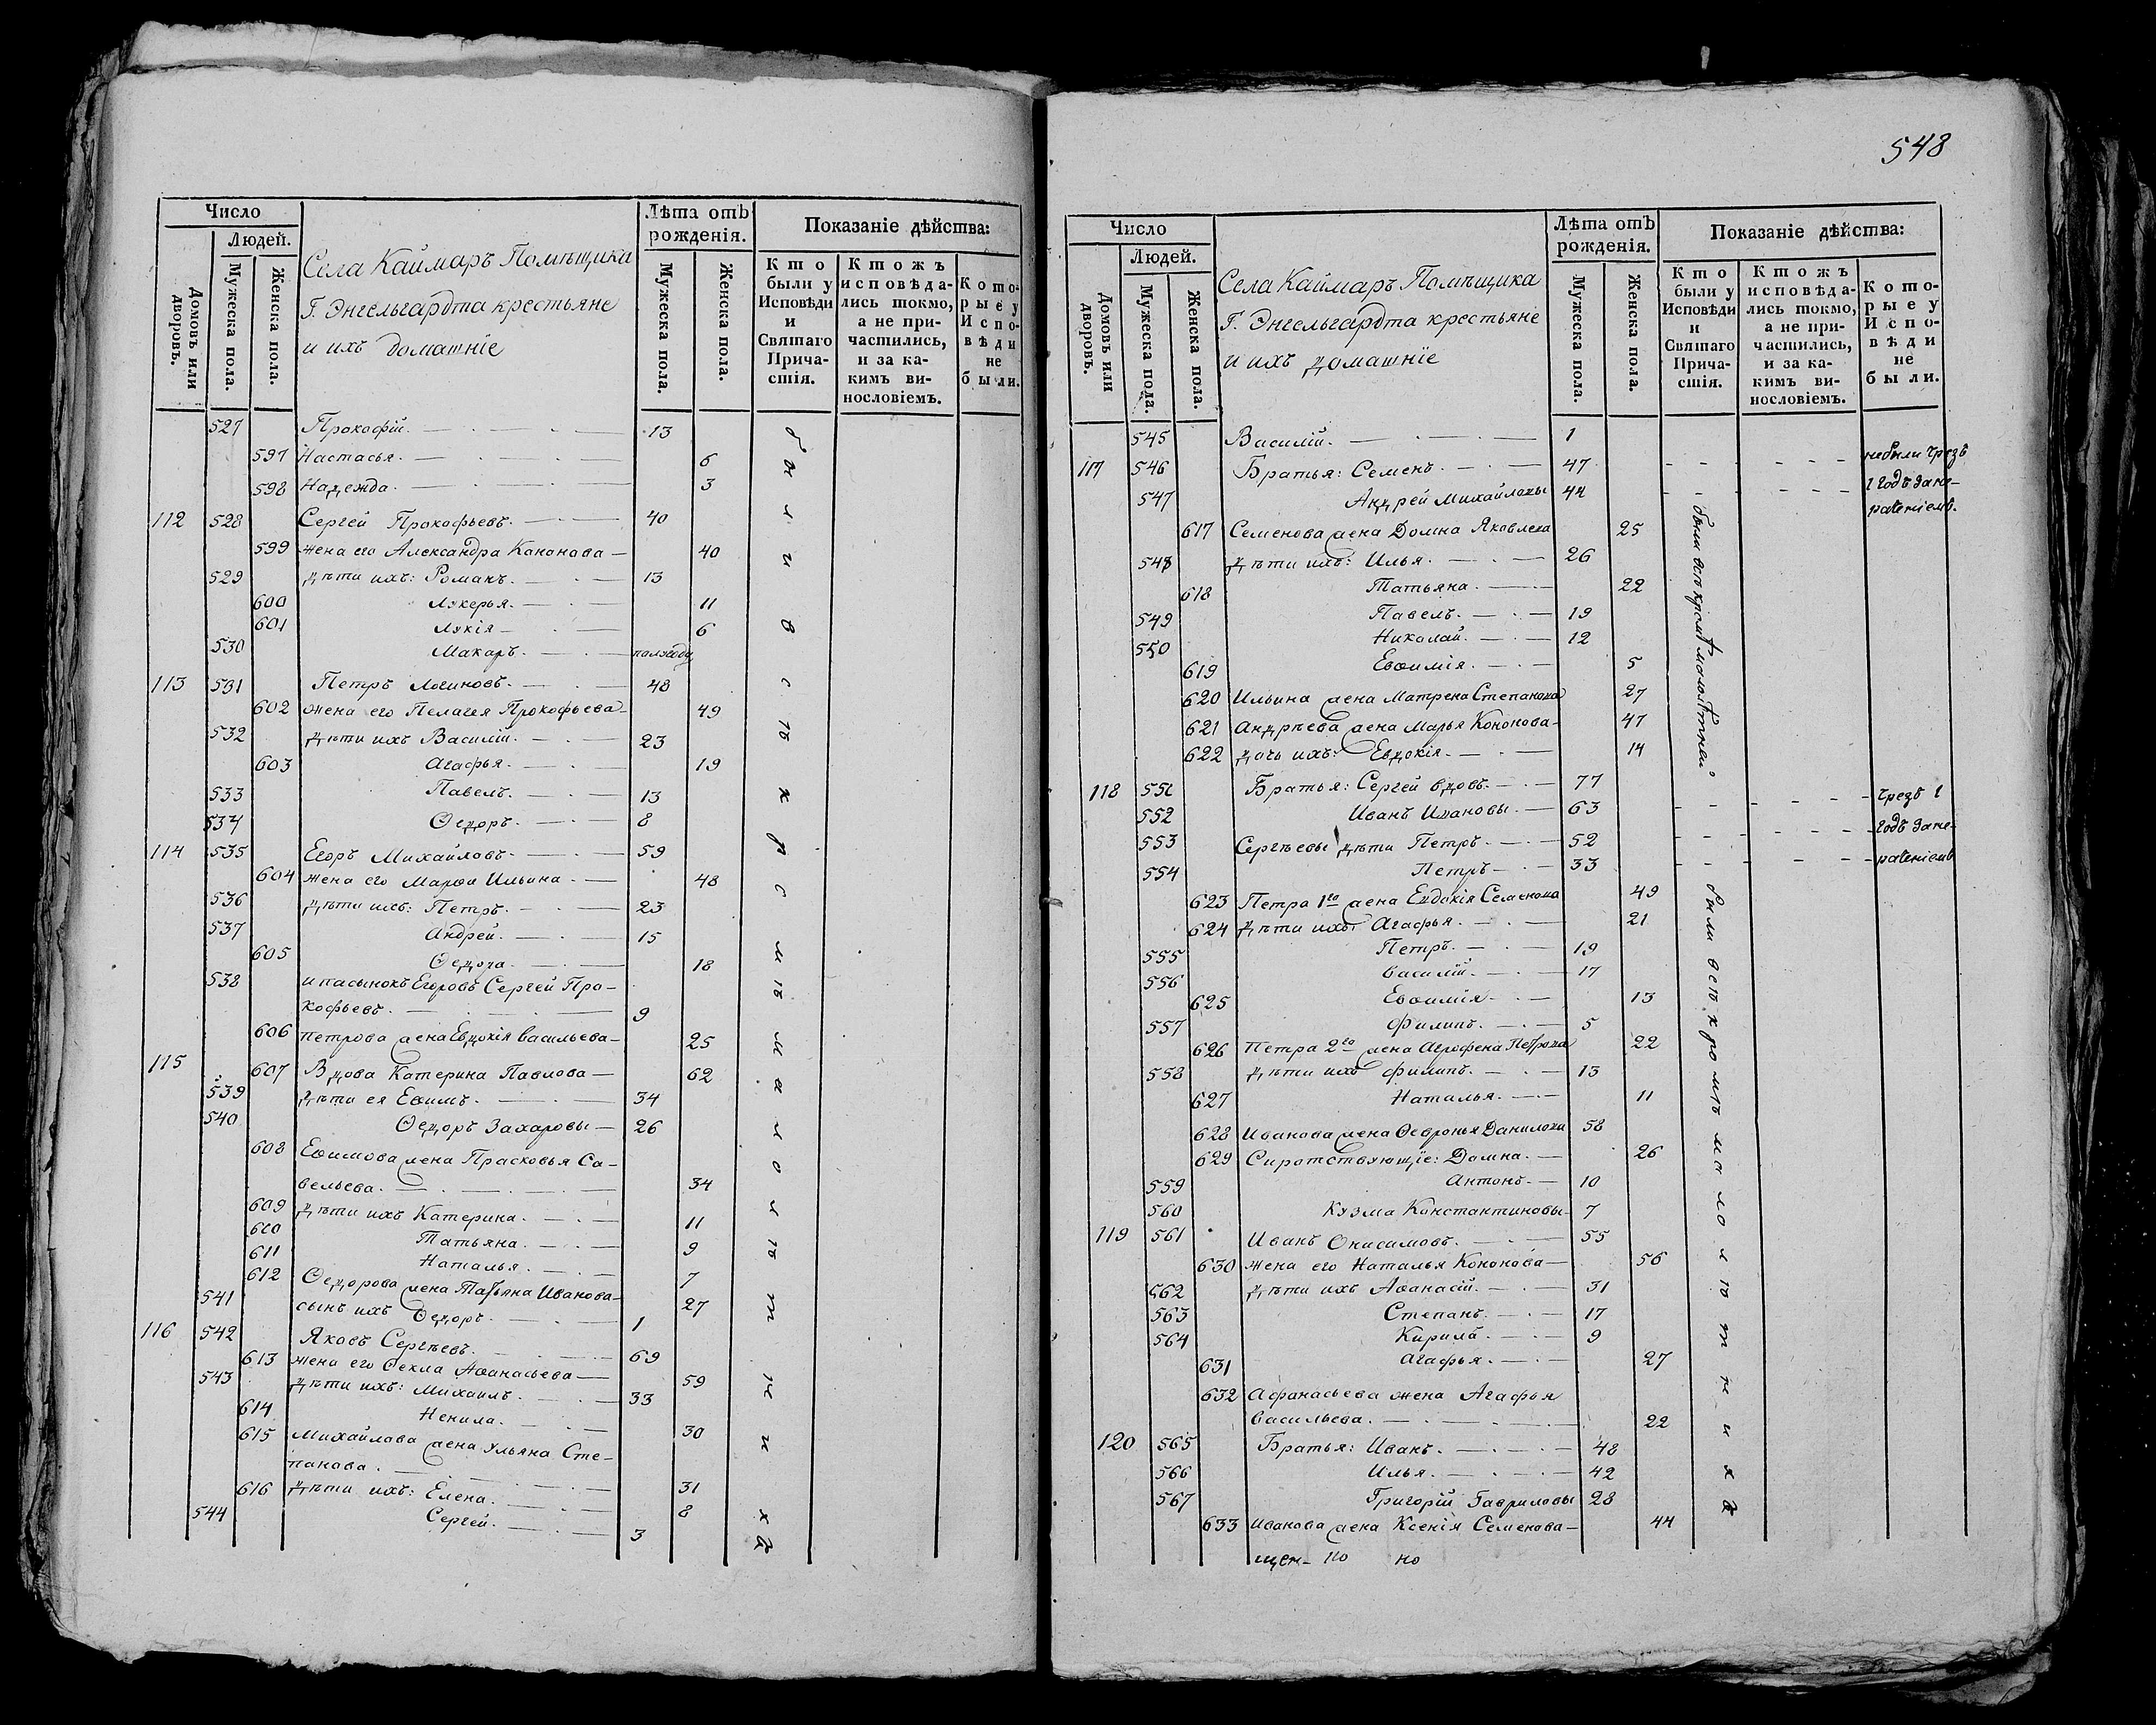 Число
Людей.
Домовъ или дворовъ.
Мужеска пола.
Женска пола.
Села Каймаръ Помѣщика
Г. Энгельгардта крестьяне
и ихъ домашніе
Лѣта отъ рожденія.
Мужеска пола.
Женска пола.
Показаніе дѣйства:
Кто были у Исповѣди и Святаго Причастія.
Ктожъ исповѣдались токмо, а не причастились, и за какимъ виносло­віемъ.
Которые у Исповѣди не были.
527 Прокофій. 13
597 Настасья. 6
598 Надежда. 3
112 528 Сергей Прокофьевъ. 40
599 жена его Александра Кононова 40
529 дѣти ихъ: Романъ. 13
600 Лукерья. 11
601 Лукія 6
530 Макаръ. полгоду
113 531 Петръ Логиновъ. 48
602 жена его Пелагея Прокофьева 49
532 дѣти ихъ Василій. 23
603 Агафья. 19
533 Павелъ. 13
534 Ѳедоръ. 8
114 535 Егоръ Михайловъ. 59
604 жена его Марѳа Ильина. 48
536 дѣти ихъ: Петръ. 23
537 Андрей. 15
605 Ѳедора. 18
538 и пасынокъ Егоровъ Сергей Про-
кофьевъ. 9
606 Петрова жена Евдокія Васильева 25
115 607 Вдова Катерина Павлова 62
539 дѣти ея Еѳимъ. 34
540 Ѳедоръ Захаровы 26
608 Еѳимова жена Прасковья Са-
вельева. 34
609 дѣти ихъ Катерина. 11
610 Татьяна. 9
611 Наталья. 7
612 Ѳедорова жена Татьяна Иванова 27
541 сынъ ихъ Ѳедоръ. 1
116 542 Яковъ Сергѣевъ. 69
613 жена его Ѳекла Аѳанасьева 59
543 дѣти ихъ: Михаилъ. 33
614 Ненила. 30
615 Михайлова жена Ульяна Сте-
панова. 31
616 дѣти ихъ: Елена. 8
544 Сергей. 3
были всѣ кромѣ малолѣтнихъ
548
Число
Людей.
Домовъ или дворовъ.
Мужеска пола.
Женска пола.
Села Каймаръ Помѣщика
Г. Энгельгардта крестьяне
и ихъ домашніе
Лѣта отъ рожденія.
Мужеска пола.
Женска пола.
Показаніе дѣйства:
Кто были у Исповѣди и Святаго Причастія.
Ктожъ исповѣдались токмо, а не причастились, и за какимъ виносло­віемъ.
Которые у Исповѣди не были.
545 Василій. 1
117 546 Братья: Семенъ. 47 небыли чрезъ
547 Андрей Михайловы 44 1 годъ зане-
раченіемъ.
617 Семенова жена Домна Яковлева 25
548 дѣти ихъ: Илья. 26
618 Татьяна. 22
549 Павелъ. 19
550 Николай. 12
619 Евѳимія. 5
620 Ильина жена Матрена Степанова 27
621 Андрѣева жена Марья Кононова 47
622 дочь ихъ: Евдокія. 14
были всѣ кромѣ малолѣтней
118 551 Братья: Сергей вдовъ. 77
552 Иванъ Ивановы. 63 чрезъ 1
553 Сергѣевы дѣти Петръ. 52 годъ зане-
554 Петръ 33 раченіемъ
623 Петра 1го жена Евдокія Семенова 49
624 дѣти ихъ: Агафья. 21
555 Петръ. 19
556 Василій. 17
625 Евѳимія 13
557 Филипъ. 5
626 Петра 2го жена Агрофена Петрова 22
558 дѣти ихъ Филипъ. 13
627 Наталья. 11
628 Иванова жена Ѳевронья Данилова 58
629 Сиротствующіе: Домна. 26
559 Антонъ. 10
560 Кузма Константиновы 7
119 561 Иванъ Онисимовъ. 55
630 жена его Наталья Кононова 56
562 дѣти ихъ Аѳанасій. 31
563 Степанъ. 17
564 Кирила. 9
631 Агафья. 27
632 Афанасьева жена Агафья
Васильева. 22
120 565 Братья: Иванъ. 48
566 Илья. 42
567 Григорій Гавриловы 28
633 Иванова жена Ксенія Семенова 44
были всѣ кромѣ малолѣтнихъ
щен- но но